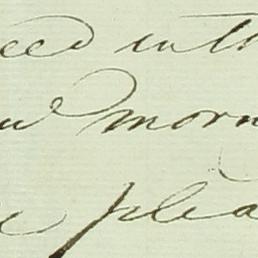 eed in th
morn
plea